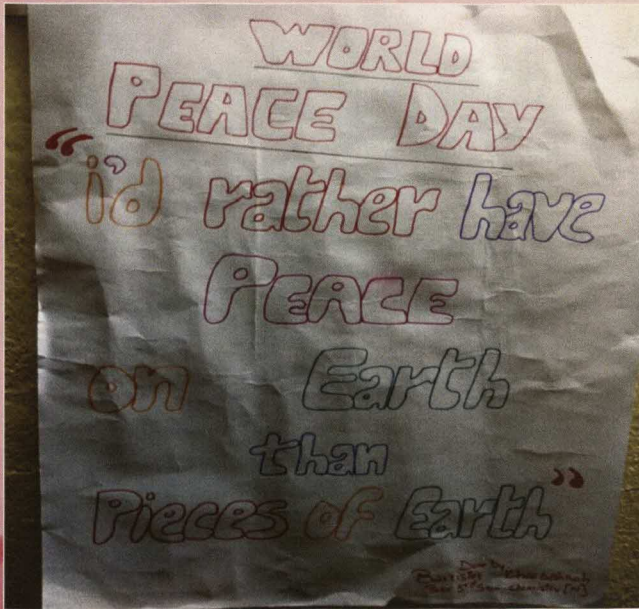 WORLD
PEACE DAY
“i'd rather have
PEACE
on Earth
than
Pieces of Earth”
Done by